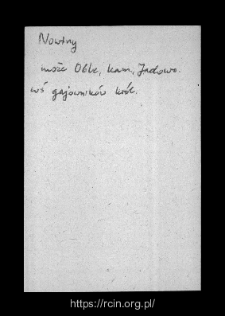 Nowiny
może Oble, kam. Jadowo.
wś gajowników kość.
https://rcin.org.pl/